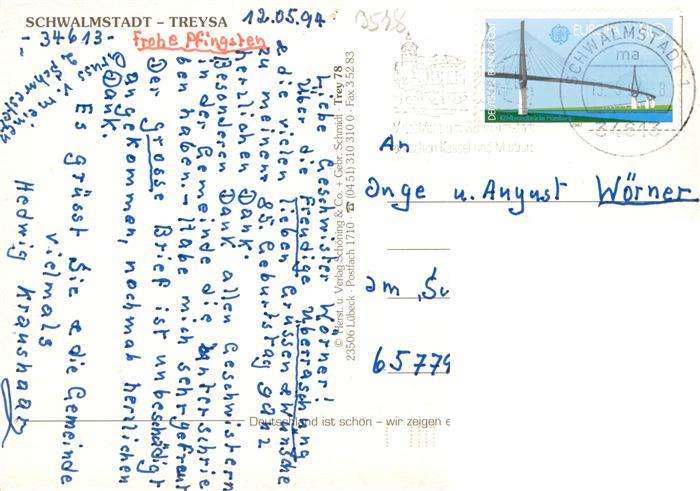 SCHWALMSTADT – TREYSA
12.05.94
- 34613 -
Frohe Pfingsten
Liebe Geschwister Wörner!
Über die Freudige Überraschung
& die vielen lieben Grüssen & Wünsche
zu meinem 85. Geburtstag ganz
herzlichen Dank.
Besonderen Dank allen Geschwistern
in der Gemeinde die Unterschrie
ben haben. - Habe mich sehr gefreut
Der grosse Brief ist unbeschädigt
angekommen, nochmal herzlichen
Dank.
Es grüsst Sie & die Gemeinde
vielmals
Hedwig Kraushaar
Gruss v. meinen
2 Schwestern
© Herst. u. Verlag Schöning & Co. + Gebr. Schmidt · Trey 78
23506 Lübeck · Postfach 1710 · ☎ (04 51) 310 310 0 · Fax 3 52 83
DEUTSCHE BUNDESPOST
EUROPA
SCHWALMSTADT 1
ma
34613
An
Inge u. August Wörner
am
65779
Deutschland ist schön – wir zeigen e